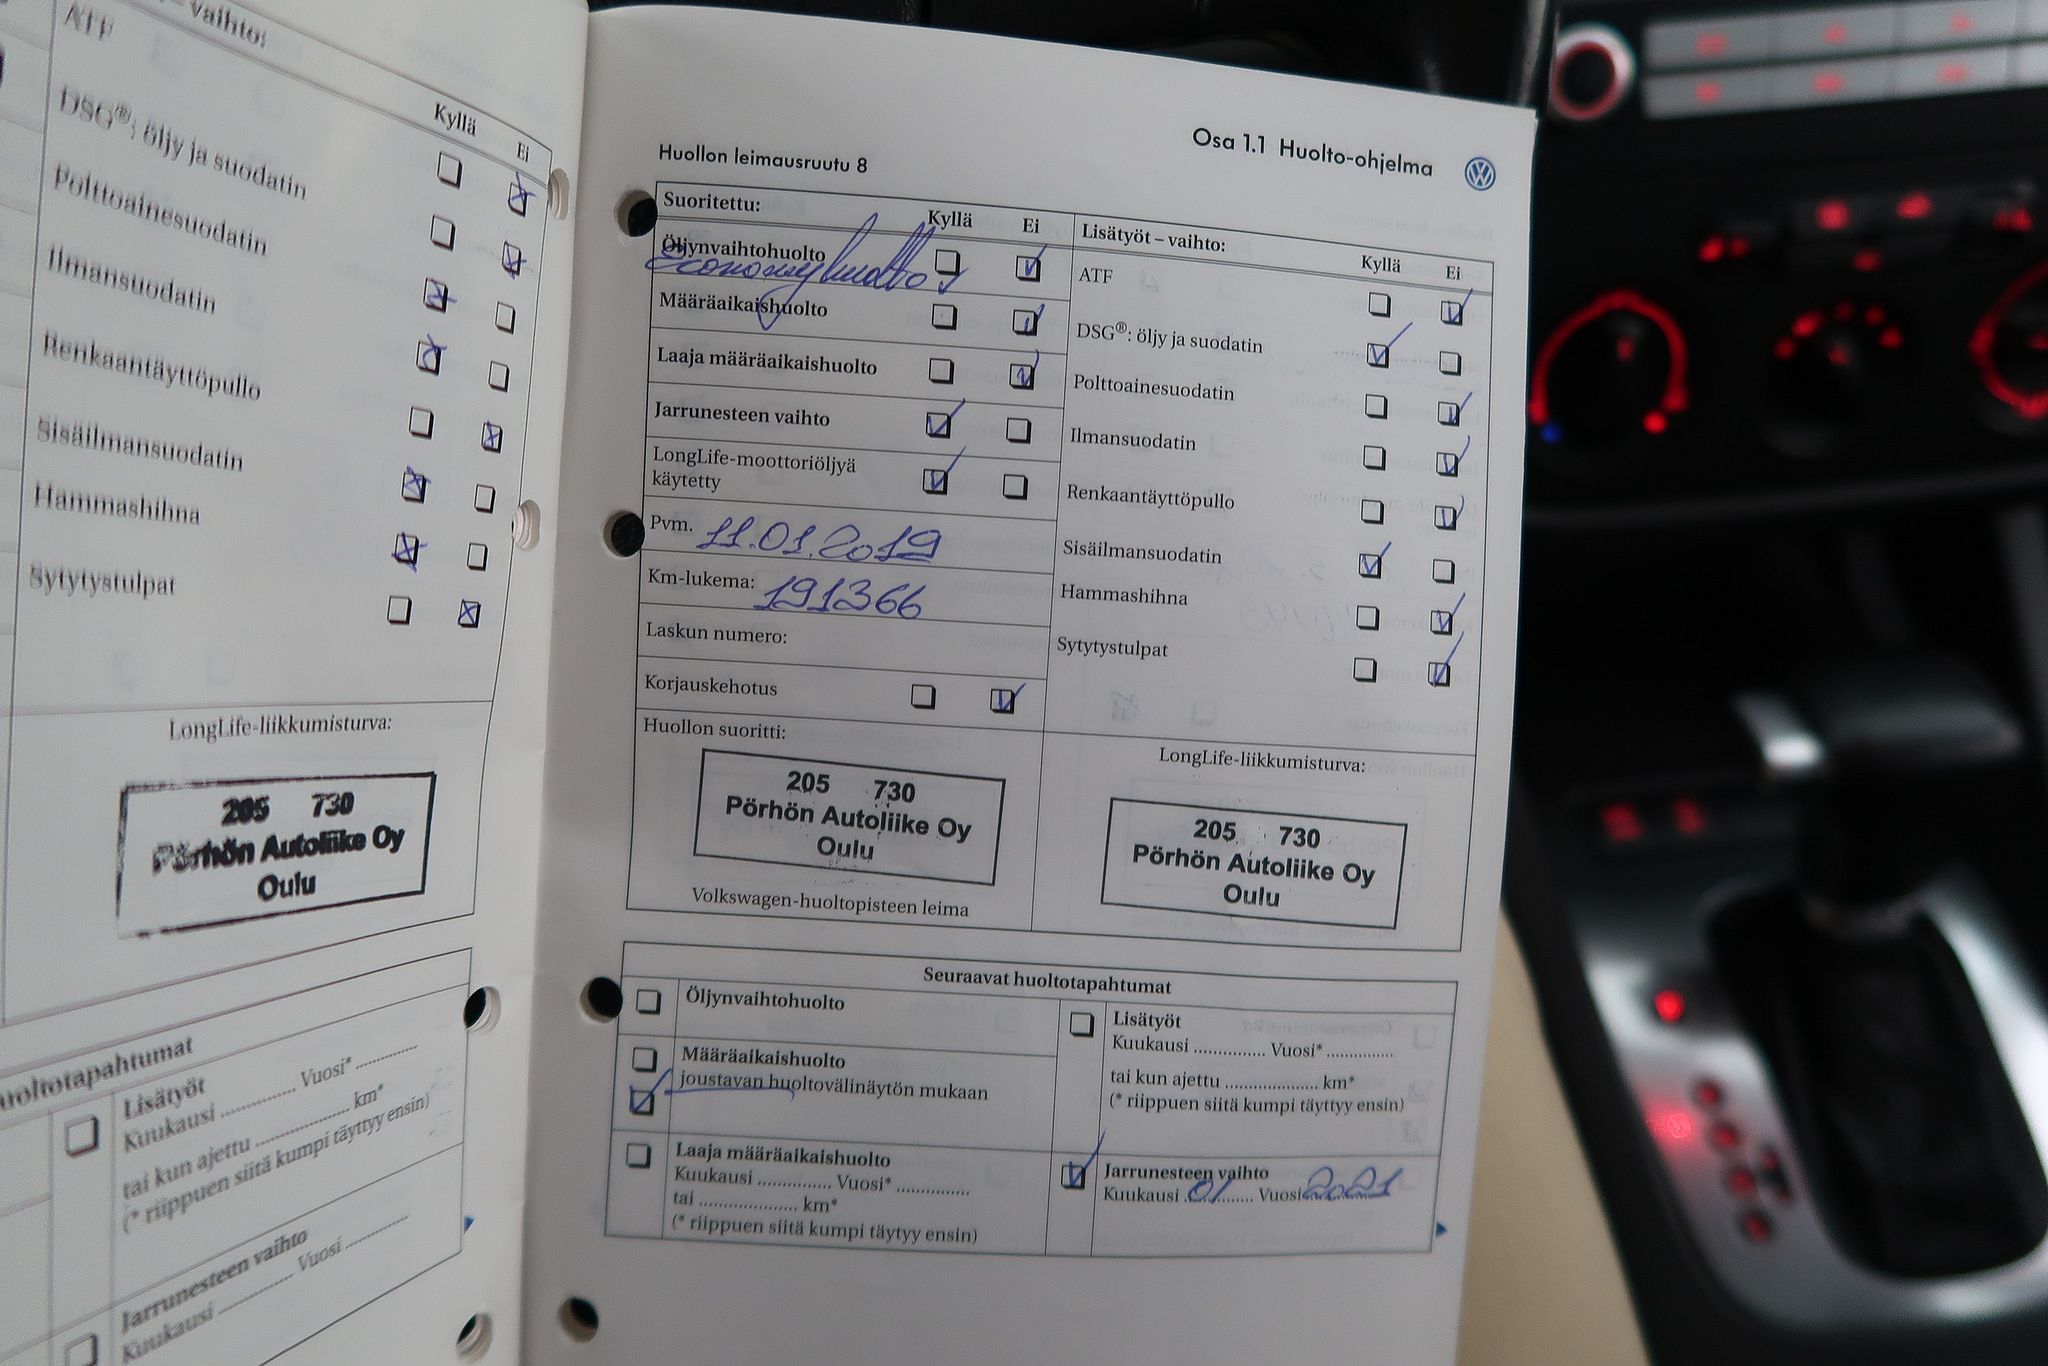 – vaihto:
ATF
Kyllä
Ei
DSG®: öljy ja suodatin
Polttoainesuodatin
Ilmansuodatin
Renkaantäyttöpullo
Sisäilmansuodatin
Hammashihna
Sytytystulpat
LongLife-liikkumisturva:
205 730
Pörhön Autoliike Oy
Oulu
uoltotapahtumat
Lisätyöt
Kuukausi ............... Vuosi* ...............
tai kun ajettu .................... km*
(* riippuen siitä kumpi täytyy ensin)
Jarrunesteen vaihto
Kuukausi ............... Vuosi ...............
Osa 1.1 Huolto-ohjelma
Huollon leimausruutu 8
Suoritettu:
Kyllä
Ei
Öljynvaihtohuolto
Economyhuolto
Määräaikaishuolto
Laaja määräaikaishuolto
Jarrunesteen vaihto
LongLife-moottoriöljyä
käytetty
Pvm. 11.01.2019
Km-lukema: 191366
Laskun numero:
Korjauskehotus
Huollon suoritti:
205 730
Pörhön Autoliike Oy
Oulu
Volkswagen-huoltopisteen leima
Lisätyöt – vaihto:
Kyllä
Ei
ATF
DSG®: öljy ja suodatin
Polttoainesuodatin
Ilmansuodatin
Renkaantäyttöpullo
Sisäilmansuodatin
Hammashihna
Sytytystulpat
LongLife-liikkumisturva:
205 730
Pörhön Autoliike Oy
Oulu
Seuraavat huoltotapahtumat
Öljynvaihtohuolto
Määräaikaishuolto
joustavan huoltovälinäytön mukaan
Laaja määräaikaishuolto
Kuukausi ............... Vuosi* ...............
tai .................... km*
(* riippuen siitä kumpi täytyy ensin)
Lisätyöt
Kuukausi ............... Vuosi* ...............
tai kun ajettu .................... km*
(* riippuen siitä kumpi täytyy ensin)
Jarrunesteen vaihto
Kuukausi 01 Vuosi 2021